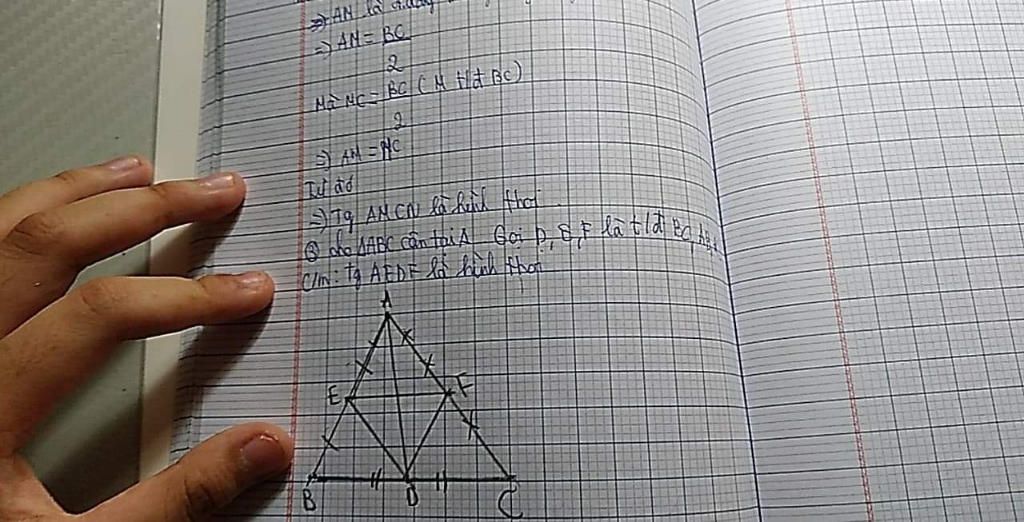 => AM là
=> AM = BC
2
Mà MC = BC ( M t/đ BC)
2
=> AM = MC
Từ đó
=> Tg AMCN là hình thoi
② cho ΔABC cân tại A. Gọi D, E, F là t/đ BC, AB,
C/m: Tg AEDF là hình thoi
A
E F
B D C